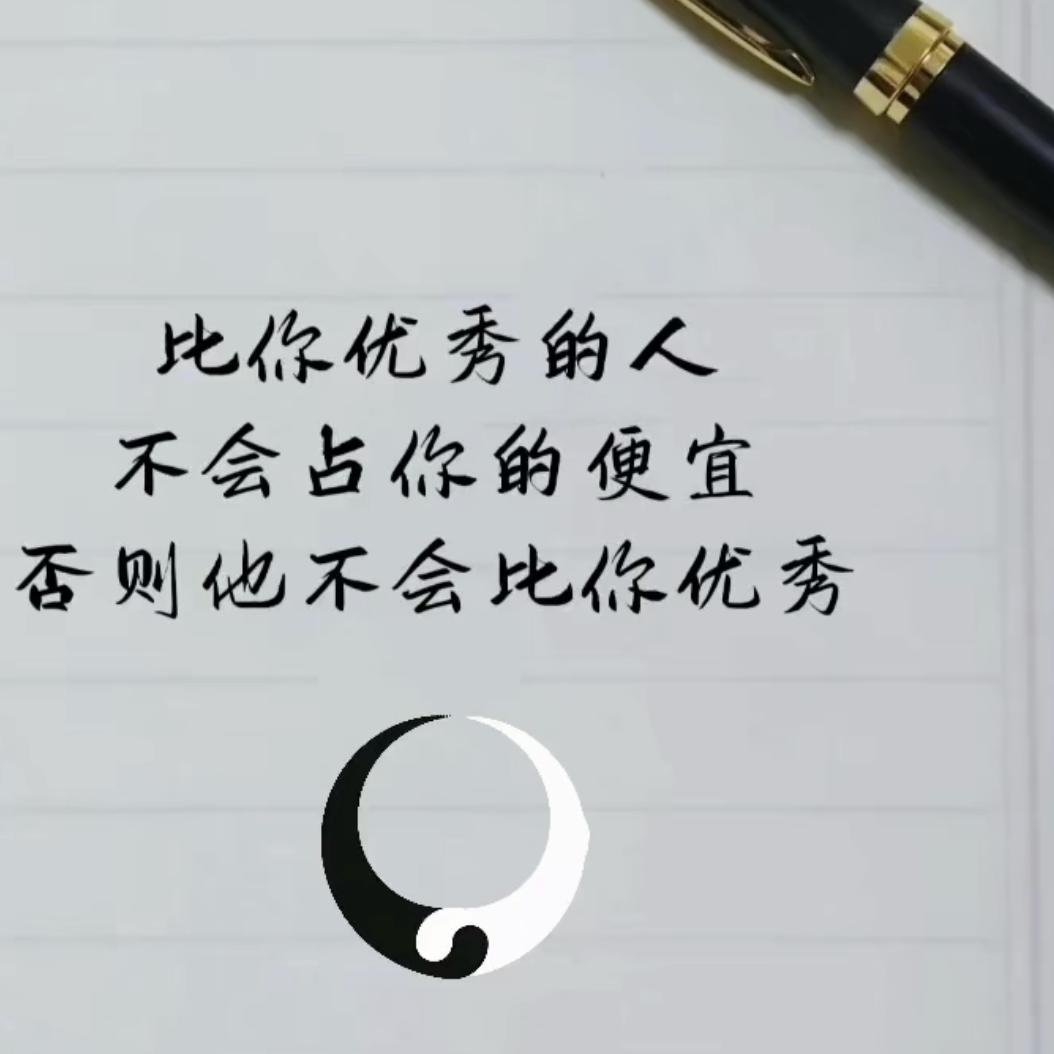 比你优秀的人
不会占你的便宜
否则他不会比你优秀